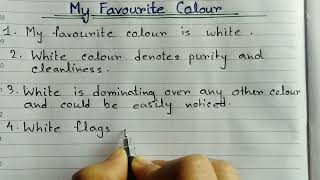 My Favourite Colour
1. My favourite colour is white.
2. White colour denotes purity and
cleanliness.
3. White is dominating over any other colour
and could be easily noticed.
4. White flags